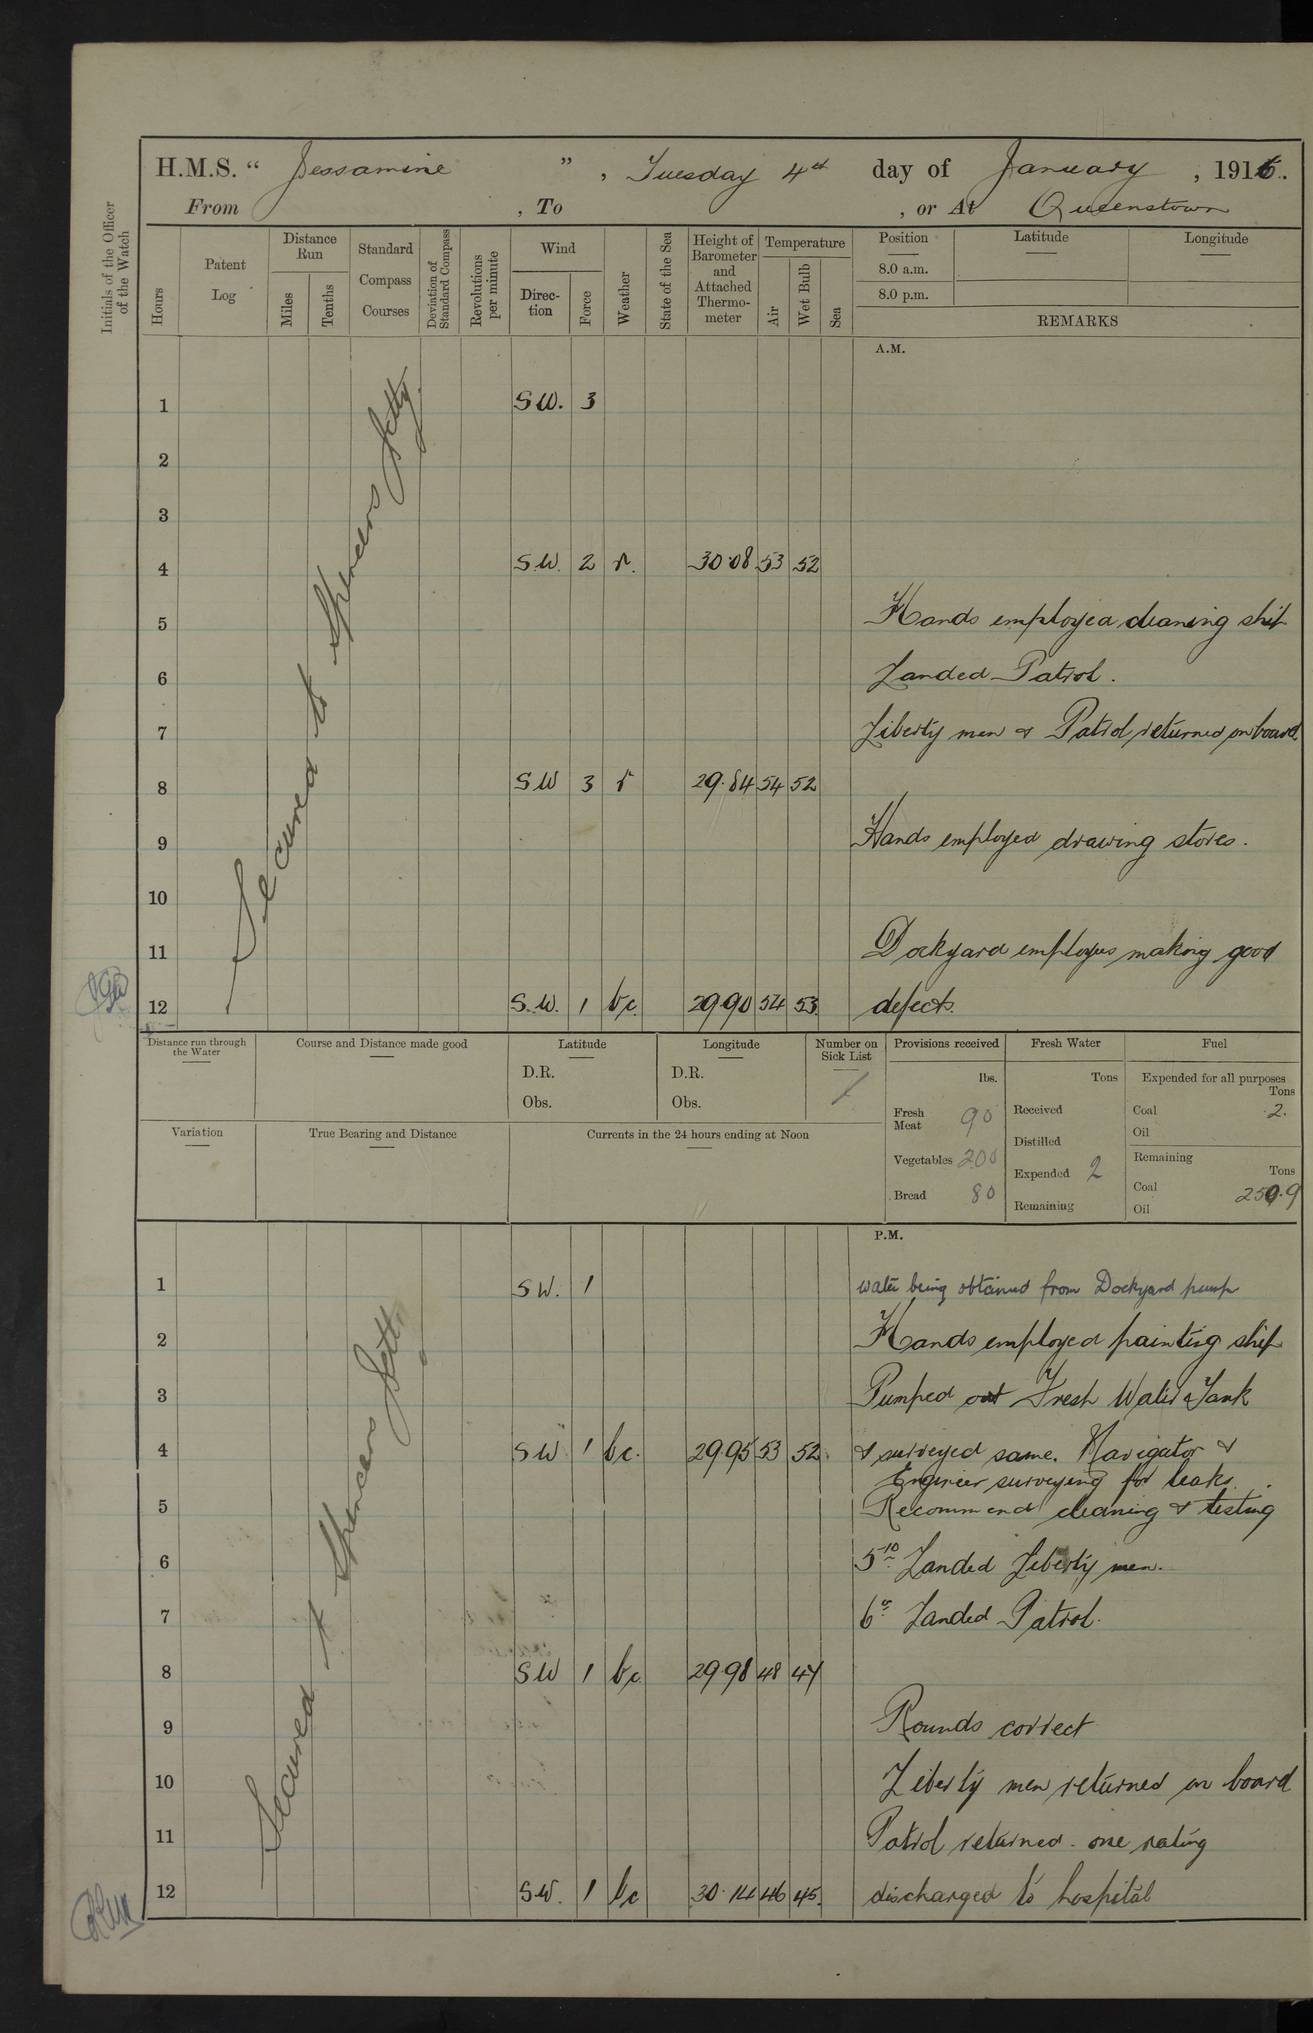 H.M.S. “ Jessamine ” , Tuesday 4th day of January , 1916.
From , To , or At Queenstown
Initials of the Officer of the Watch
Hours
Patent Log
Distance Run
Miles
Tenths
Standard Compass Courses
Deviation of Standard Compass
Revolutions per minute
Wind
Direc-tion
Force
Weather
State of the Sea
Height of Barometer and Attached Thermo-meter
Temperature
Air
Wet Bulb
Sea
Position Latitude Longitude
8.0 a.m.
8.0 p.m.
REMARKS
A.M.
Secured to Spencers Jetty
1 S.W. 3
2
3
4 S.W. 2 r. 30.08 53 52
5 Hands employed cleaning ship
6 Landed Patrol.
7 Liberty men & Patrol returned on board.
8 SW 3 r 29.84 54 52
9 Hands employed drawing stores.
10
11 Dockyard employes making good
12 S.W. 1 bc. 29.90 54 53 defects.
Distance run through the Water
Course and Distance made good
Latitude
D.R.
Obs.
Longitude
D.R.
Obs.
Number on Sick List
1
Provisions received
lbs.
Fresh Meat 90
Vegetables 200
Bread 80
Fresh Water
Tons
Received
Distilled
Expended 2
Remaining
Fuel
Expended for all purposes
Tons
Coal 2.
Oil
Remaining
Tons
Coal 250.9
Oil
Variation
True Bearing and Distance
Currents in the 24 hours ending at Noon
P.M.
Secured to Spencers Jetty
1 SW. 1 water being obtained from Dockyard pump
2 Hands employed painting ship
3 Pumped out Fresh Water Tank
4 SW 1 bc. 29.95 53 52. & surveyed same. Navigator &
Engineer surveying for leaks.
5 Recommend cleaning & testing
6 5.10 Landed Liberty men.
7 6.0 Landed Patrol.
8 SW 1 bc 29.98 48 47
9 Rounds correct
10 Liberty men returned on board
11 Patrol returned. one rating
12 S.W. 1 bc 30.14 46 45. discharged to hospital